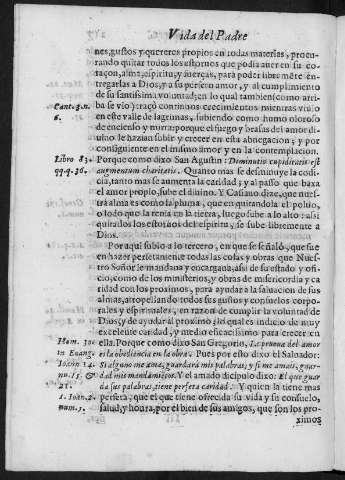 Vida del Padre
nes, gustos y quereres propios en todas materias, procu-
rando quitar todos los estorvos que podia auer en su co-
raçon, alma, espiritu, y fuerças, para poder libremẽte en-
tregarlas a Dios, ò a su perfeto amor, y al cumplimiento
de su santissima voluntad; en lo qual tambien (como arri-
Cant. 3. n. ba se vio) traço continuos crecimientos mientras viuio
6. en este valle de lagrimas, subiendo como humo oloroso
de encienso y mirra: porque el fuego y brasas del amor di-
uino le hazian subir y crecer en esta abnegacion, y por
consiguiente en el mismo amor y en la contemplacion.
Libro 83. Porque como dixo San Agustin: Deminutio cupiditatis est
qq. q. 36. augmentum charitatis. Quanto mas se desminuye la codi-
cia, tanto mas se aumenta la caridad; y al passo que baxa
el amor propio, sube el diuino. Y Casiano dize, que nues-
tra alma es como la pluma, que en quitandola el poluo,
o lodo que la tenia en la tierra, luego sube a lo alto: assi
quitados los estoruos del espiritu, se sube libremente a
Dios.
Por aqui subio a lo tercero, en que se señaló, que fue
en hazer perfetamente todas las cosas y obras que Nues-
tro Señor le mandaua y encargaua, assi de su estado y ofi-
cio, como de los ministerios, y obras de misericordia y ca
ridad con los proximos, para ayudar a la saluacion de sus
almas, atropellando todos sus gustos y consuelos corpo-
rales y espirituales, en razon de cumplir la voluntad de
Dios, y de ayudar al proximo, lo qual es indicio de muy
excelente caridad, y medio eficacissimo para crecer en
Hom. 30. ella. Porque como dixo San Gregorio, La prueua del amor
in Euang. es la obediencia en la obra. Pues por esto dixo el Saluador:
Ioann 14. Si alguno me ama, guardará mis palabras; y si me amais, guar-
nu. 15. & dad mis mandamientos. Y el amado dicipulo dixo: El que guar
21. da sus palabras, tiene perfeta caridad. Y quien la tiene mas
1. Ioan. 2. perfeta, que el que tiene ofrecida su vida y su consuelo,
num. 5. salud, y honra, por el bien de sus amigos, que son los pro-
ximos